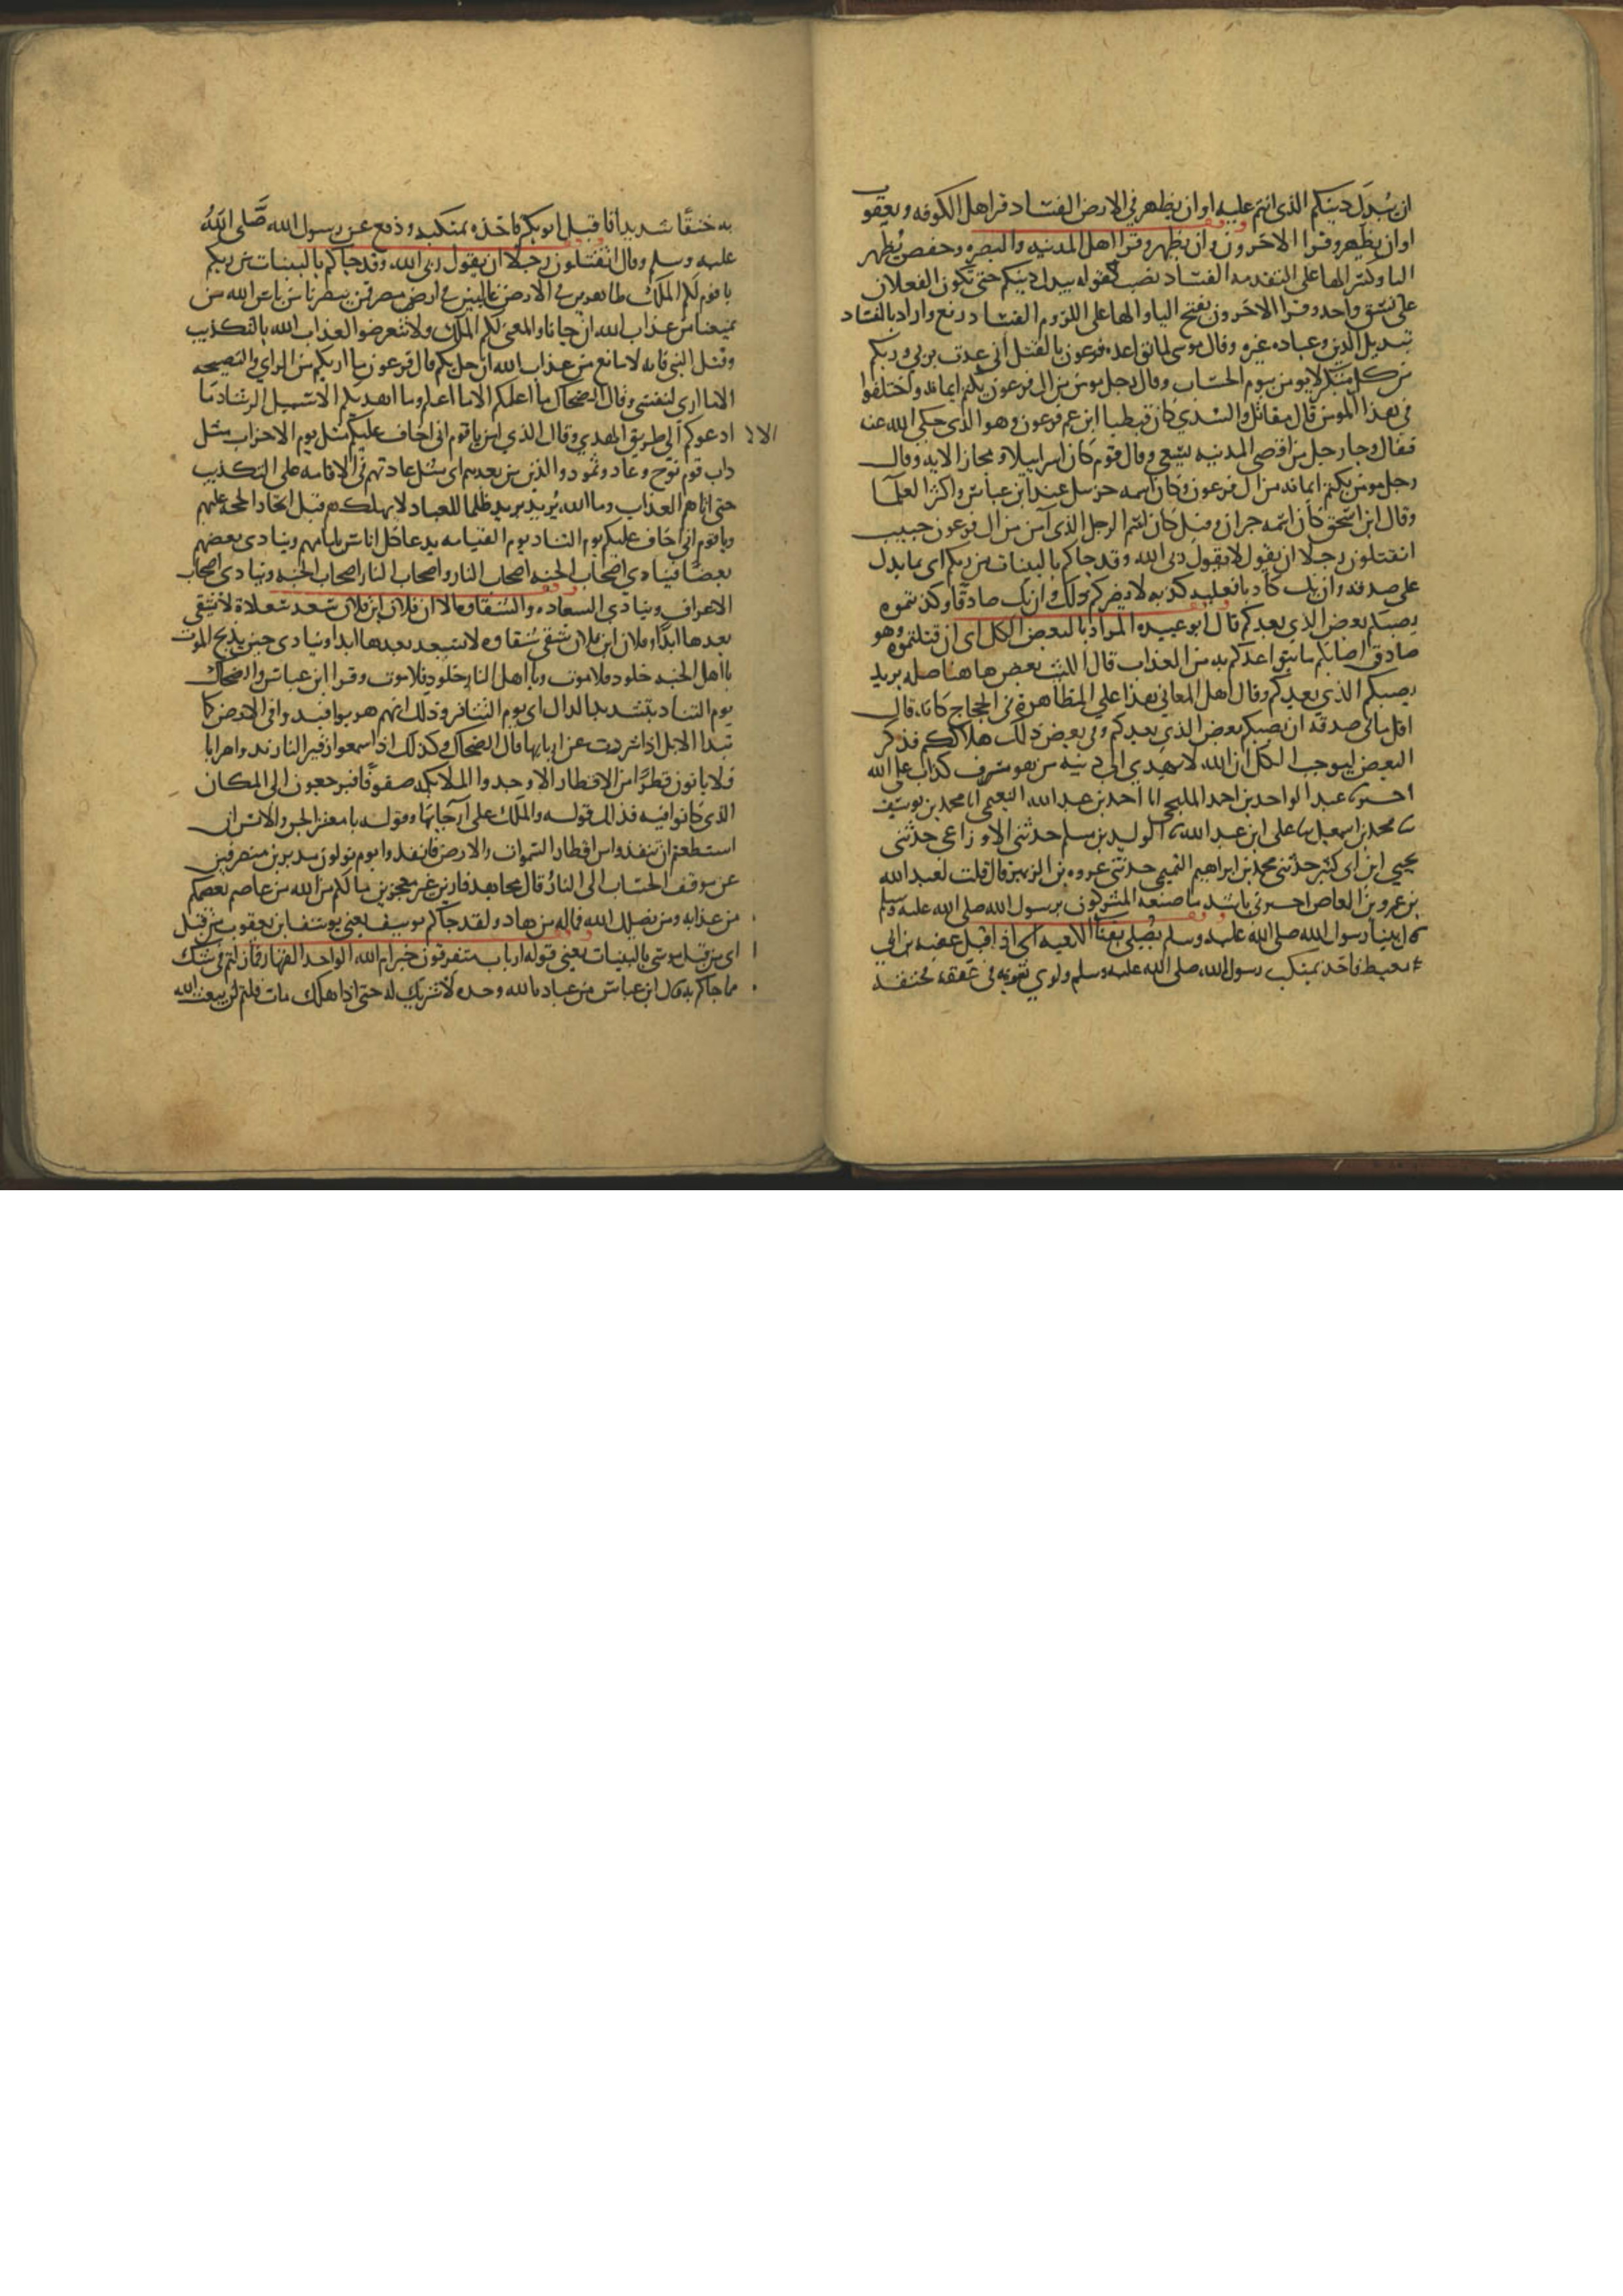 ان يبدل دينكم الذي انتم عليه او ان يظهر في الارض الفساد قرا اهل الكوفه ويعقوب
او ان يظهر وقرا الاخرون وان يظهر وقرا اهل المدينه والبصره وحفص يظهر
اليا وكسر الها على التعديه الفساد نصب كقوله يبدل دينكم حتى تكون الفعلان
على نسق واحد وقرا الاخرون بفتح اليا والها على اللزوم الفساد رفع واراد بالفساد
تبديل الدين وعباده غيره وقال موسى لما توعده فرعون بالقتل اني عدت بربي وربكم
من كل متكبر لا يومن بيوم الحساب وقال رجل مومن من ال فرعون يكتم ايمانه واختلفوا
في هذا المومن قال مقاتل والسدي كان قبطيا ابن عم فرعون وهو الذي حكى الله عنه
فقال وجا رجل من اقصى المدينه يسعى وقال قوم كان اسراييليا ومجاز الايه وقال
رجل مومن يكتم ايمانه من ال فرعون وكان اسمه حزبيل عند ابن عباس واكثر العلما
وقال ابن اسحق كان اسمه جبران وقيل كان اسم الرجل الذي آمن من ال فرعون حبيب
اتقتلون رجلا ان يقول لا يقول ربي الله وقد جاكم بالبينات من ربكم اي بما يدل
على صدقه وان يك كاذبا فعليه كذبه لا يضركم ذلك وان يك صادقا وكذبتموه
يصبكم بعض الذي يعدكم قال ابو عبيده المراد بالبعض الكل اي ان قتلتموه وهو
صادق اصابكم ما يتواعدكم به من العذاب قال الليث بعض هاهنا صله يريد
يصبكم الذي يعدكم وقال اهل المعاني هذا على المظاهره في الحجاج كانه قال
اقل ما في صدقه ان يصبكم بعض الذي يعدكم وفي بعض ذلك هلاككم فذكر
البعض ليوجب الكل ان الله لا يهدي الى دينه من هو مسرف كذاب على الله
اخبرنا عبد الواحد بن احمد المليحي انا احمد بن عبد الله النعيمي انا محمد بن يوسف
نا محمد بن اسمعيل نا على ابن عبد الله نا الوليد بن مسلم حدثني الاوزاعي حدثني
يحيى ابن ابي كثير حدثني محمد بن ابراهيم التيمي حدثني عروه بن الزبير قال قلت لعبد الله
بن عمرو بن العاص اخبرني باشد ما صنعه المشركون برسول الله صلى الله عليه وسلم
قال بينا رسول الله صلى الله عليه وسلم يصلي بفنا الكعبه اذ اقبل عقبه بن ابي
معيط فاخذ بمنكب رسول الله صلى الله عليه وسلم ولوى ثوبه في عنقه فخنقه
به خنقا شديدا فاقبل ابو بكر فاخذه بمنكبه ودفع عن رسول الله صلى الله
عليه وسلم وقال اتقتلون رجلا ان يقول ربي الله وقد جاكم بالبينات من ربكم
يا قوم لكم الملك ظاهرين في الارض غالبين في ارض مصر فمن ينصرنا من باس الله من
يمنعنا من عذاب الله ان جانا والمعنى لكم الملك ولا تتعرضوا لعذاب الله بالتكذيب
وقتل النبي فانه لا مانع من عذاب الله ان حل بكم قال فرعون ما اريكم من الراي والنصيحه
الا ما ارى لنفسي وقال الضحاك ما اعلمكم الا ما اعلم وما اهديكم الا سبيل الرشاد ما
ادعوكم الا الى طريق الهدي وقال الذي امن يا قوم اني اخاف عليكم مثل يوم الاحزاب مثل
داب قوم نوح وعاد وثمود والذين من بعدهم اي مثل عادتهم في الاقامه على التكذيب
حتى اتاهم العذاب وما الله يريد يريد ظلما للعباد لا يهلكهم قبل اتخاذ الحجه عليهم
ويا قوم اني اخاف عليكم يوم التناد يوم القيامه يدعا كل اناس بامامهم وينادي بعضهم
بعضا فينادي اصحاب الجنه اصحاب النار واصحاب النار اصحاب الجنه وينادي اصحاب
الاعراف وينادي السعاده والشقاوه الا ان فلان ابن فلان سعد سعادة لا يشقي
بعدها ابدا وفلان ابن فلان شقي شقاوه لا يسعد بعدها ابدا وينادي حين يذبح الموت
يا اهل الجنه خلود فلا موت ويا اهل النار خلود فلا موت وقرا ابن عباس والضحاك
يوم التناد بتشديد الدال اي يوم التنافر وذلك انهم هربوا فندوا في الارض كما
تند الابل اذا شردت عن اربابها قال الضحاك وكذلك اذا سمعوا زفير النار ندوا هرابا
فلا ياتون قطرا من الاقطار الا وجدوا الملايكه صفوفا فيرجعون الى المكان
الذي كانوا فيه فذلك قوله والملك على ارجايها وقوله يا معشر الجن والانس ان
استطعتم ان تنفذوا من اقطار السموات والارض فانفذوا يوم تولون مدبرين منصرفين
عن موقف الحساب الى النار قال مجاهد فارين غير معجزين ما لكم من الله من عاصم يعصمكم
من عذابه ومن يضلل الله فما له من هاد ولقد جاكم يوسف يعني يوسف ابن يعقوب من قبل
اي من قبل موسى بالبينات يعني قوله ارباب متفرقون خير ام الله الواحد القهار فما زلتم في شك
مما جاكم به قال ابن عباس من عباده الله وحده لا شريك له حتى اذا هلك مات قلتم لن يبعث الله